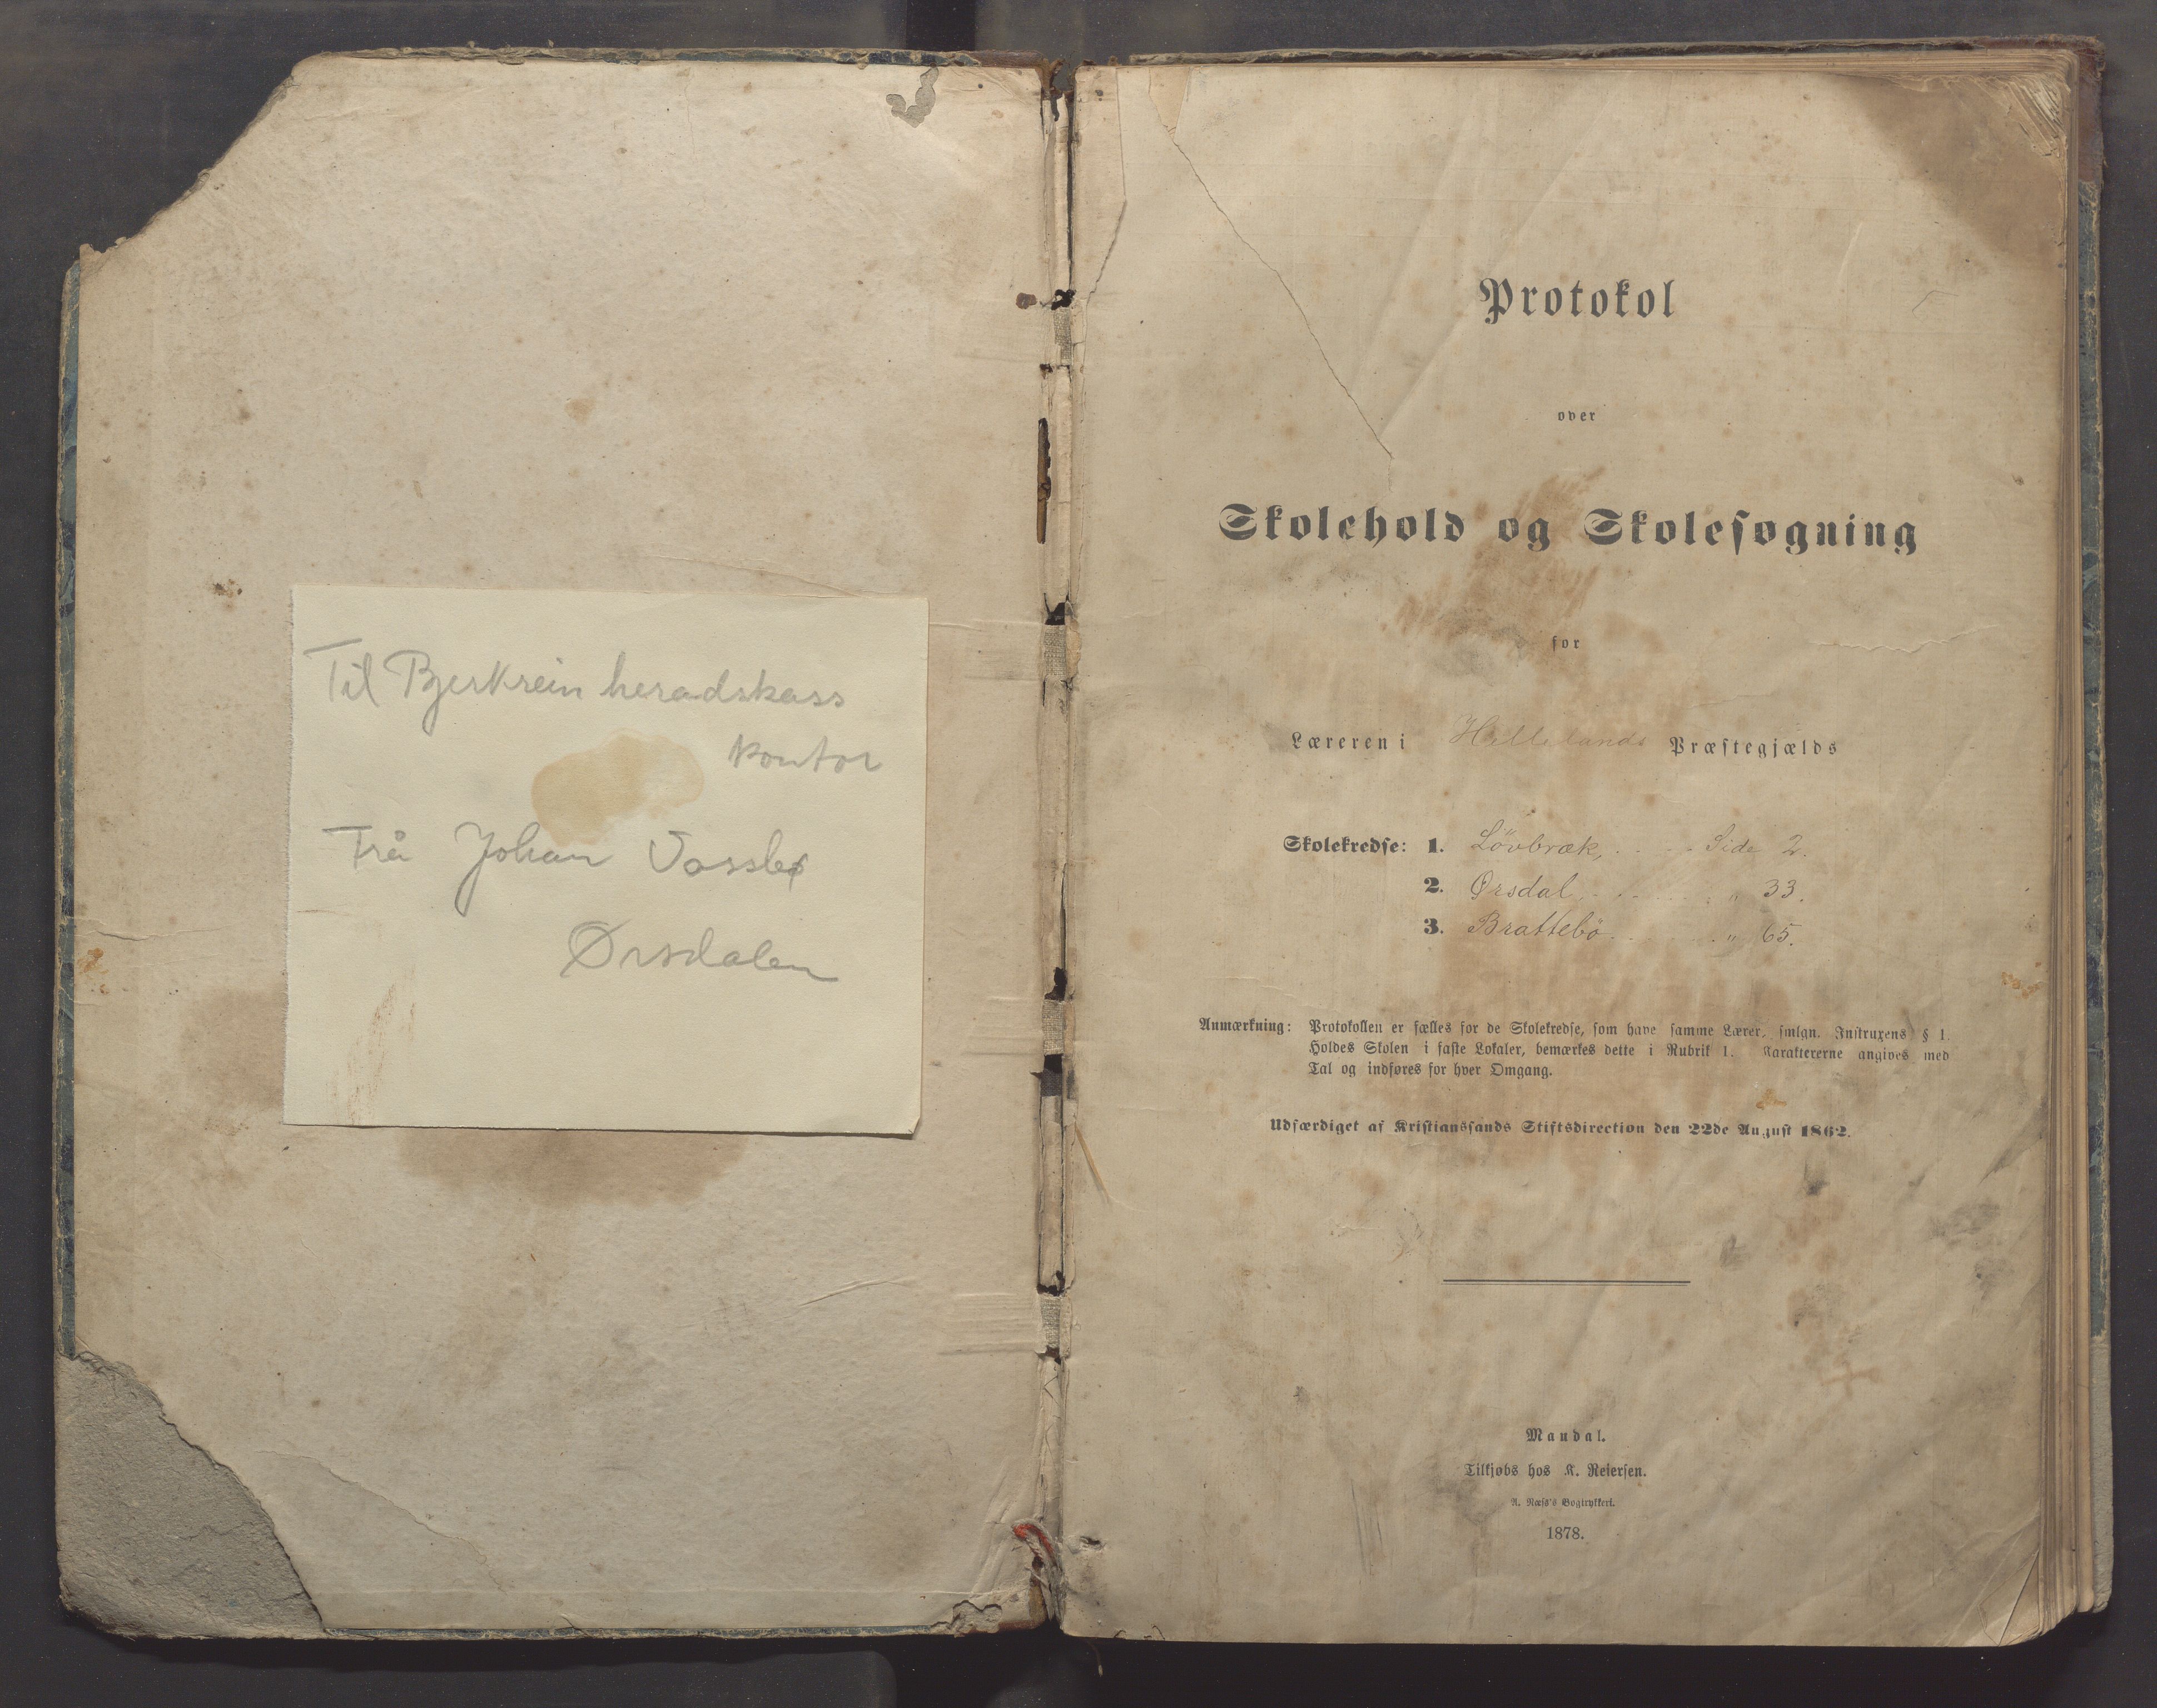 Til Bjerkreim heradskass
kontor
Frå Johan Vasslø
Ørsdalen
Protokol
over
Skolehold og Skolesøgning
for
Læreren i Hellelands Præstegjælds
Skolekredse: 1. Lövbræk, . . . . Side 2.
2. Ørsdal . . . . . . „ 33.
3. Brattebö . . . . . . „ 65.
Anmærkning: Protokollen er fælles for de Skolekredse, som have samme Lærer, smlgn. Instruxens § 1.
Holdes Skolen i faste Lokaler, bemærkes dette i Rubrik 1. Karaktererne angives med
Tal og indføres for hver Omgang.
Udfærdiget af Kristianssands Stiftsdirection den 22de August 1862.
Mandal.
Tilkjøbs hos K. Reiersen.
A. Næss's Bogtrykkeri.
1878.